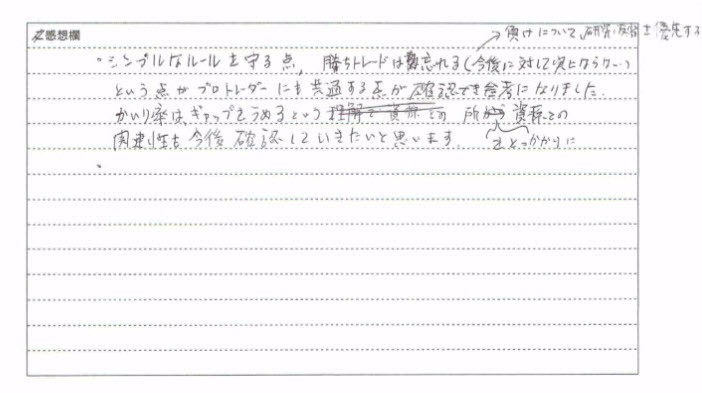 感想欄
→ 負けについて、研究・反省を優先する
・シンプルなルールを守る点、勝ちトレードは忘れる(今後に対して気にならない)
という点がプロトレーダーにも共通する点が確認でき参考になりました。
かいり率は、ギャップをうめるという 所から 資源との
関連性も今後確認していきたいと思います。 をとっかかりに